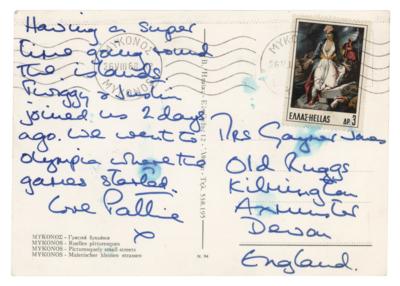 Having a super
time going round
the islands.
Twiggy & Justin
joined us 2 days
ago. We went to
Olympia where the
games started.
Love Pattie
x
ΜΥΚΟΝΟΣ
MYKONOS
ΕΛΛΑΣ-HELLAS
ΔΡ. 3
Mrs Gaynor Jones
Old Ruggs
Kilmington
Axminster
Devon
England.
ΜΥΚΟΝΟΣ - Γραφικά δρομάκια
MYKONOS - Ruelles pittoresques
MYKONOS - Picturesquely small streets
MYKONOS - Malerischer kleinen strassen
N. 94